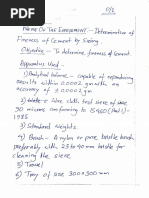 Name Of The Experiment :- Determination of
Fineness of Cement by Sieving
Objective :- To determine fineness of Cement.
Apparatus Used -
1) Analytical balance - capable of reproducing
results within 0.0002 gm with an
accuracy of ± 0.0002 gm
wire cloth test sieve of size
30 microns conforming to IS:460 (Part-1)-
1985
3) Standard weights
4) Brush - A nylon or pure bristle brush,
preferably with 25 to 40 mm bristle for
cleaning the sieve
5) Trowel
6) Tray of size 300x300 mm